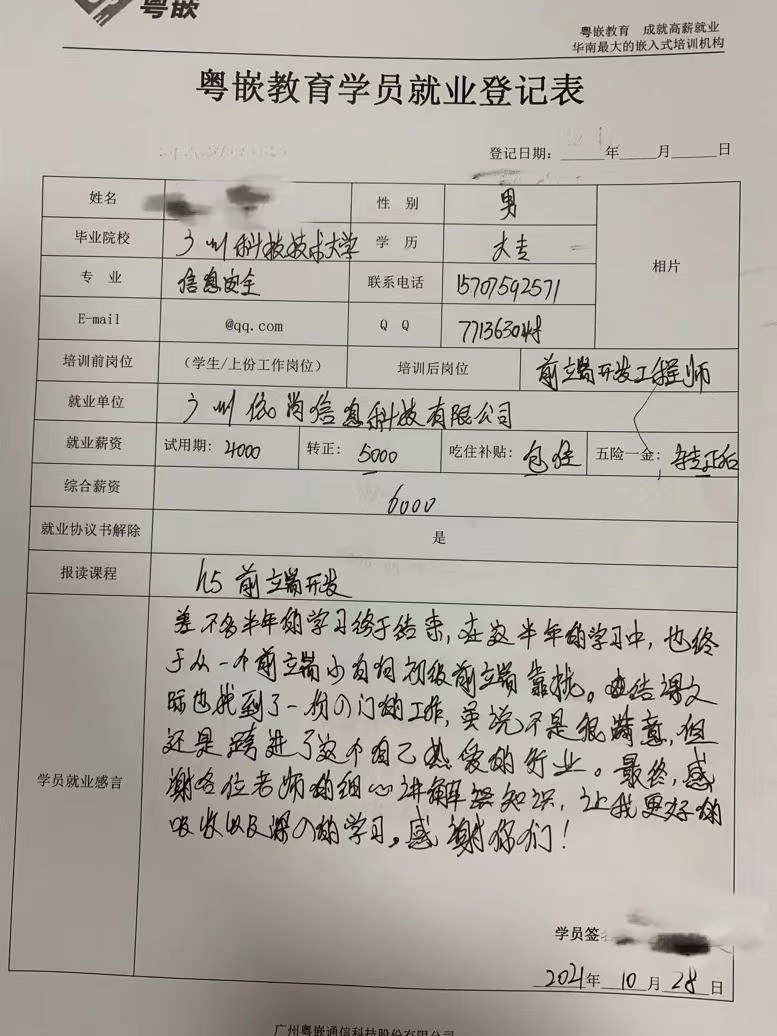 粤嵌
粤嵌教育 成就高薪就业
华南最大的嵌入式培训机构
粤嵌教育学员就业登记表
登记日期: 年 月 日
姓名 性 别 男
毕业院校 广州科技技术大学 学 历 大专
相片
专 业 信息安全 联系电话 15707592571
E-mail @qq.com Q Q 7713630
培训前岗位 (学生/上份工作岗位) 培训后岗位 前端开发工程师
就业单位 广州依尚信息科技有限公司
就业薪资 试用期: 4000 转正: 5000 吃住补贴: 包住 五险一金: 转正后
综合薪资 6000
就业协议书解除 是
报读课程 h5 前端开发
差不多半年的学习终于结束,在这半年的学习中,也终
于从一个前端小白向初级前端靠拢。结课之
际也找到了一份入门的工作,虽说不是很满意,但
还是跨进了这个自己热爱的行业。最终,感
学员就业感言
谢各位老师的细心讲解知识,让我更好的
吸收以及深入的学习。感谢你们!
学员签
2021年 10 月 28 日
广州粤嵌通信科技股份有限公司